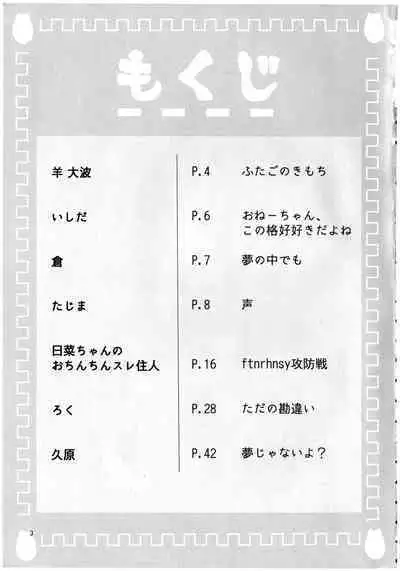 もくじ
羊 大波 P.4 ふたごのきもち
いしだ P.6 おねーちゃん、
この格好好きだよね
倉 P.7 夢の中でも
たじま P.8 声
日菜ちゃんの
おちんちんスレ住人 P.16 ftnrhnsy攻防戦
ろく P.28 ただの勘違い
久原 P.42 夢じゃないよ?
3